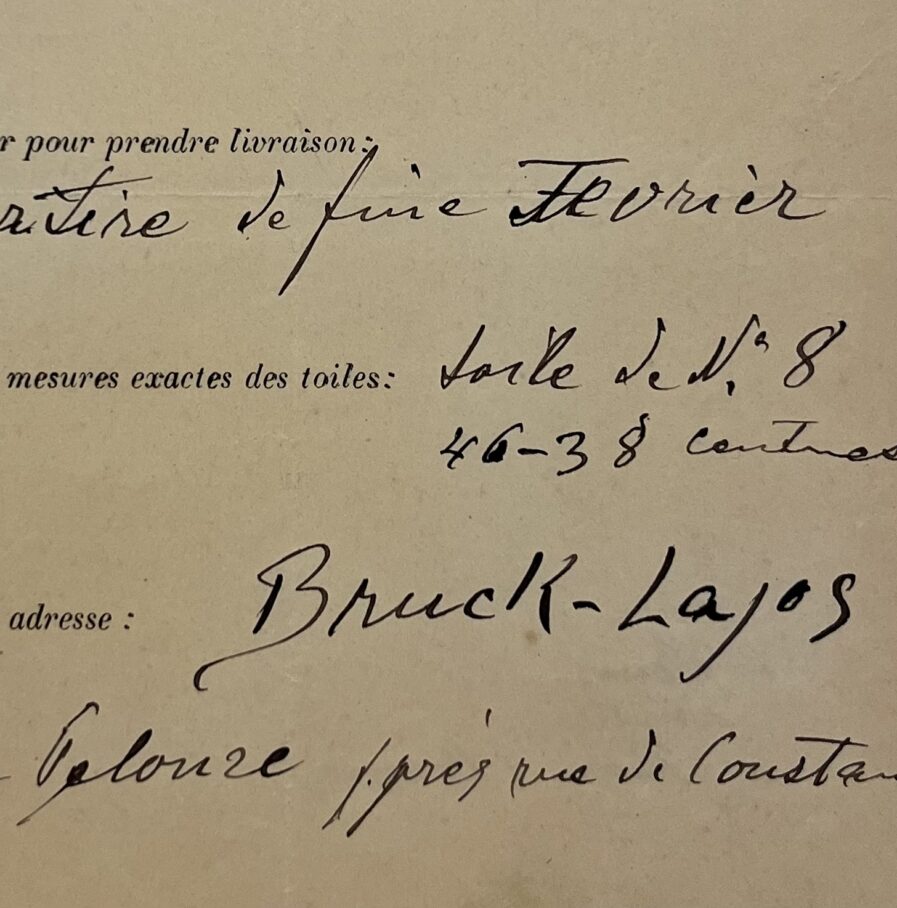 r pour prendre livraison:
de fine Fevrier
mesures exactes des toiles: toile de Nº 8
46-38 centmes
adresse : Bruck-Lajos
Pelouze (près rue de Constan